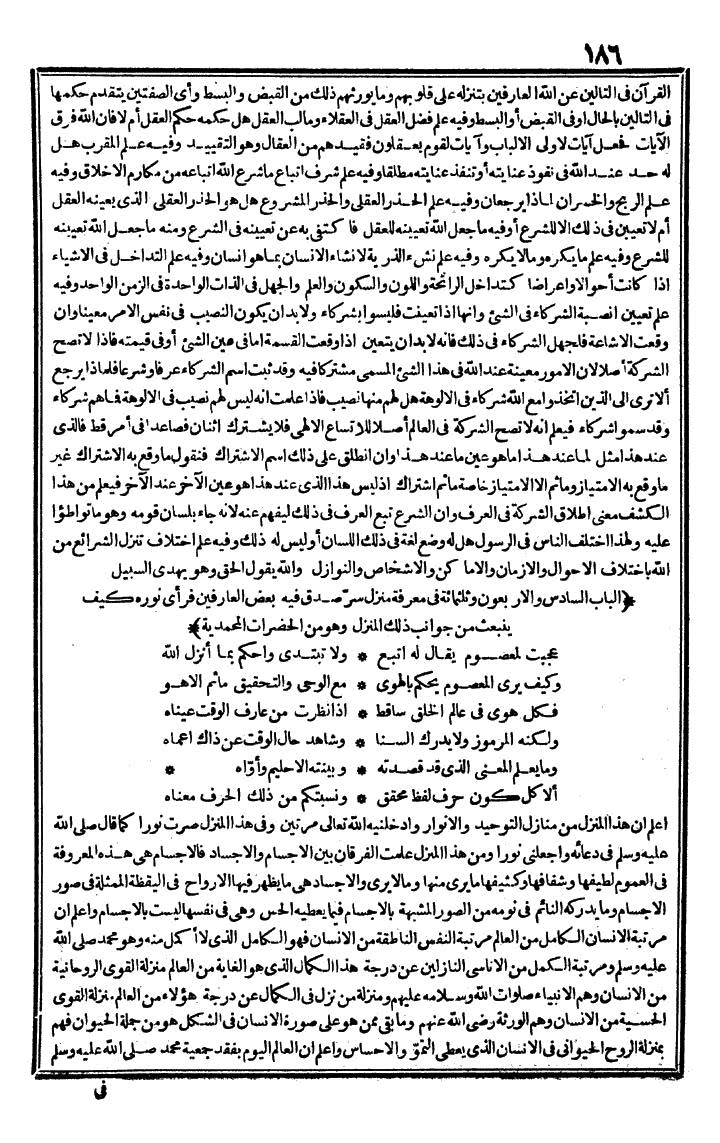 ١٨٦
القرآن فى التالين عن الله العارفين بتنزله على قلوبهم وما يورثهم ذلك من القبض والبسط وأى الصفتين يتقدم حكمها
فى التالين بالحال أو فى القبض أو البسط وفيه علم فضل العقل فى العقلاء وما لب العقل هل حكمه حكم العقل أم لا فان الله فرق
الآيات فجعل آيات لاولى الالباب وآيات لقوم يعقلون فقيدهم من العقال وهو التقييد وفيه علم المقرب هل
له حد عند الله فى نفوذ عنايته أو تنفذ عنايته مطلقا وفيه علم شرف اتباع ما شرع الله اتباعه من مكارم الاخلاق وفيه
علم الربح والخسران لماذا يرجعان وفيه علم الحذر العقلى والحذر المشروع هل هو الحذر العقلى الذى يعينه العقل
أم لا تعيين فى ذلك الا للشرع أو فيه ما جعل الله تعيينه للعقل فاكتفى به عن تعيينه فى الشرع ومنه ما جعل الله تعيينه
للشرع وفيه علم ما يكره وما لا يكره وفيه علم نشء الذرية لانشاء الانسان بما هو انسان وفيه علم التداخل فى الاشياء
اذا كانت أحوالا وأعراضا كتداخل الرائحة واللون والسكون والعلم والجهل فى الذات الواحدة فى الزمن الواحد وفيه
علم تعيين انصبة الشركاء فى الشئ وانها اذا تعينت فليسوا بشركاء ولا بد ان يكون النصيب فى نفس الامر معينا وان
وقعت الاشاعة فلجهل الشركاء فى ذلك فانه لا بد ان يتعين اذا وقعت القسمة اما فى عين الشئ أو فى قيمته فاذا لا تصح
الشركة أصلا لان الامور معينة عند الله فى هذا الشئ المسمى مشتركا فيه وقد ثبت اسم الشركاء عرفا وشرعا فلماذا يرجع
ألا ترى الى الذين اتخذوا مع الله شركاء فى الالوهة هل لهم منها نصيب فاذا علمت انه ليس لهم نصيب فى الالوهة فما هم شركاء
وقد سموا شركاء فيعلم انه لا تصح الشركة فى العالم أصلا للاتساع الالهى فلا يشترك اثنان فصاعدا فى أمر قط فالذى
عند هذا مثل لما عند هذا ما هو عين ما عند هذا وان انطلق على ذلك اسم الاشتراك فنقول ما وقع به الاشتراك غير
ما وقع به الامتياز وما ثم الا الامتياز خاصة ما ثم اشتراك اذ ليس هذا الذى عند هذا هو عين الآخر عند الآخر فيعلم من هذا
الكشف معنى اطلاق الشركة فى العرف وان الشرع تبع العرف فى ذلك ليفهم عنه لانه جاء بلسان قومه وهو ما تواطؤا
عليه ولهذا اختلف الناس فى الرسول هل له وضع لغة فى ذلك اللسان أو ليس له ذلك وفيه علم اختلاف تنزل الشرائع من
الله باختلاف الاحوال والازمان والاماكن والاشخاص والنوازل والله يقول الحق وهو يهدى السبيل
﴿الباب السادس والاربعون وثلثمائة فى معرفة منزل سر صدق فيه بعض العارفين فرأى نوره كيف
ينبعث من جوانب ذلك المنزل وهو من الحضرات المحمدية﴾
عجبت لمعصوم يقال له اتبع * ولا تبتدى واحكم بما أنزل الله
وكيف يرى المعصوم يحكم بالهوى * مع الوحى والتحقيق ما ثم الا هو
فكل هوى فى عالم الخلق ساقط * اذا نظرت من عارف الوقت عيناه
ولكنه المرموز لا يدرك السنا * وشاهد حال الوقت عن ذاك اعماه
وما يعلم المعنى الذى قد قصدته * وبينته الا حليم وأواه *
ألا كل كون حرف لفظ محقق * ونسبتكم من ذلك الحرف معناه
اعلم ان هذا المنزل من منازل التوحيد والانوار وادخلنيه الله تعالى مرتين وفى هذا المنزل صرت نورا كما قال صلى الله
عليه وسلم فى دعائه واجعلنى نورا ومن هذا المنزل علمت الفرقان بين الاجسام والاجساد فالاجسام هى هذه المعروفة
فى العموم لطيفها وشفافها وكثيفها ما يرى منها وما لا يرى والاجساد هى ما يظهر فيها الارواح فى اليقظة الممثلة فى صور
الاجسام وما يدركه النائم فى نومه من الصور المشبهة بالاجسام فيما يعطيه الحس وهى فى نفسها ليست بالاجسام واعلم ان
مرتبة الانسان الكامل من العالم مرتبة النفس الناطقة من الانسان فهو الكامل الذى لا أكمل منه وهو محمد صلى الله
عليه وسلم ومرتبة الكمل من الاناسى النازلين عن درجة هذا الكمال الذى هو الغاية من العالم منزلة القوى الروحانية
من الانسان وهم الانبياء صلوات الله وسلامه عليهم ومنزلة من نزل فى الكمال عن درجة هؤلاء من العالم منزلة القوى
الحسية من الانسان وهم الورثة رضى الله عنهم وما بقى ممن هو على صورة الانسان فى الشكل هو من جملة الحيوان فهم
بمنزلة الروح الحيوانى فى الانسان الذى يعطى النمو والاحساس واعلم ان العالم اليوم بفقد جمعية محمد صلى الله عليه وسلم
فى